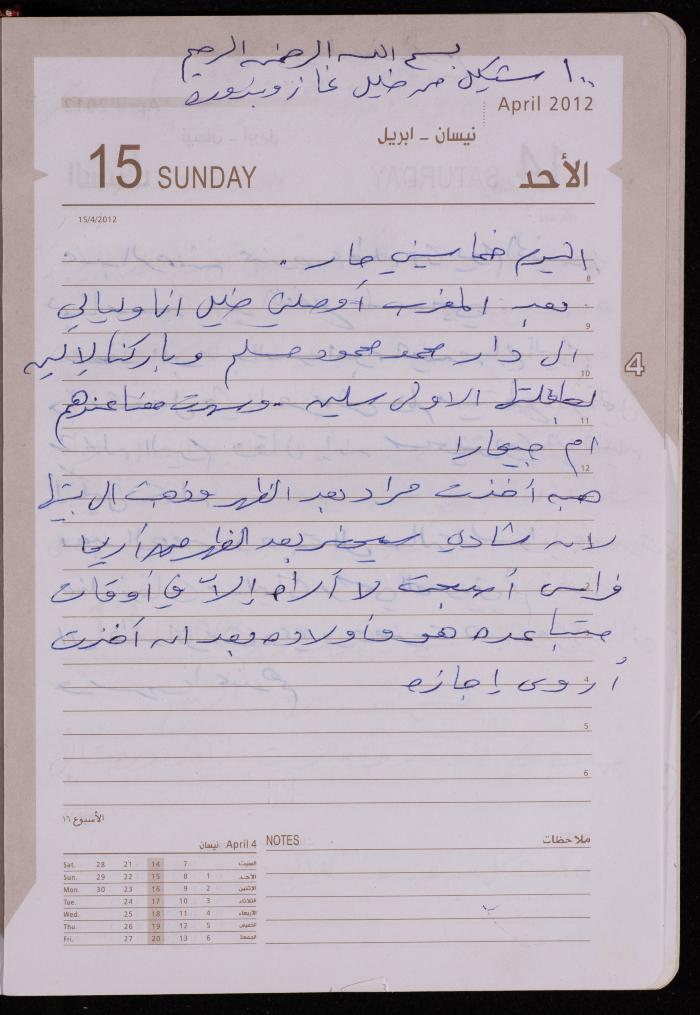 بسم الله الرحمن الرحيم
١٠٠ شيكل من خليل غاز وبندورة
April 2012
نيسان - ابريل
15 SUNDAY
الأحد
15/4/2012
اليوم خماسيني حار .
بعد المغرب أوصلني خليل انا وليالي
ال دار محمد محمود مسلم وباركنا لإليه
لطفلتها الاولى سلين . وسهرت معنا عندهم
ام جيفارا
هبه أخذت مراد بعد الظهر وذهبت ال بيتها
لانه شادي سيحضر بعد الظهر من أريحا
فراس أصبحت لا أراه إلا في أوقات
متباعده هو وأولاده بعد ان أخذت
أروى إجازه
4
8
9
10
11
12
2
4
5
6
الأسبوع ١٦
April 4 نيسان
Sat. 28 21 14 7 السبت
Sun. 29 22 15 8 1 الأحد
Mon. 30 23 16 9 2 الاثنين
Tue. 24 17 10 3 الثلاثاء
Wed. 25 18 11 4 الأربعاء
Thu. 26 19 12 5 الخميس
Fri. 27 20 13 6 الجمعة
NOTES ملاحظات